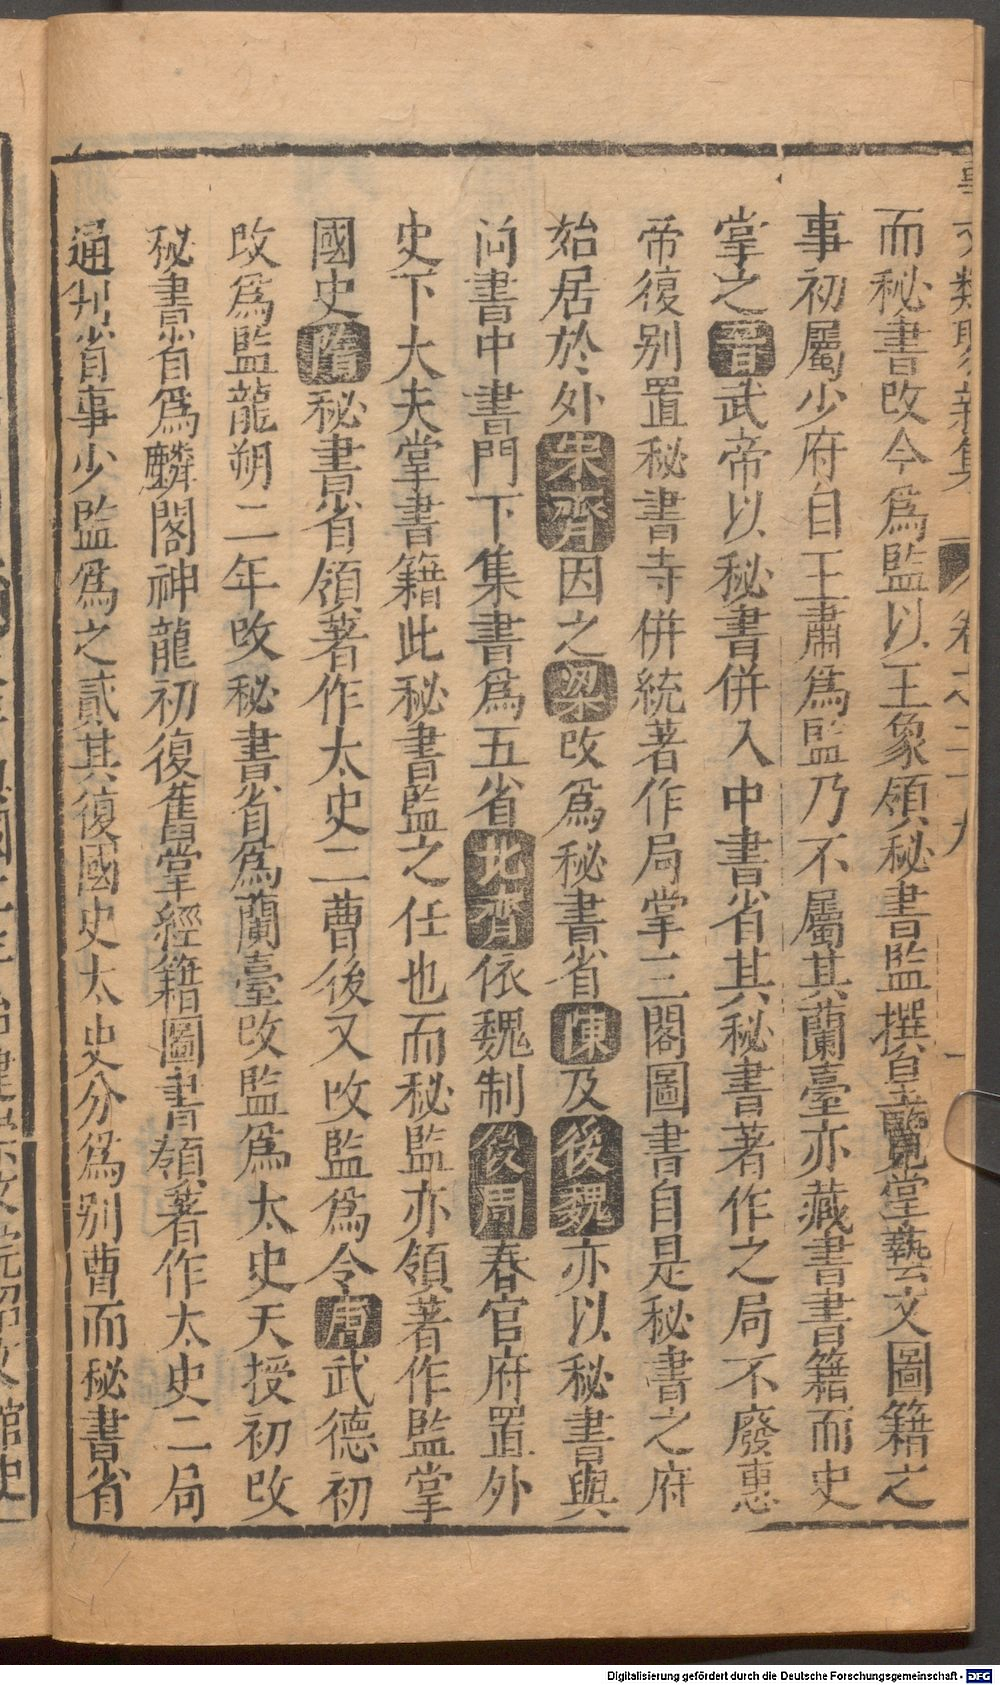 事文類聚新集 卷之二十九
而秘書改令爲監以王象領秘書監撰皇覽堂藝文圖籍之
事初屬少府自王肅爲監乃不屬其蘭臺亦藏書書籍而史
掌之晉武帝以秘書併入中書省其秘書著作之局不廢惠
帝復别置秘書寺併統著作局掌三閣圖書自是秘書之府
始居於外宋齊因之梁改爲秘書省陳及後魏亦以秘書與
尚書中書門下集書爲五省北齊依魏制後周春官府置外
史下大夫掌書籍此秘書監之任也而秘監亦領著作監掌
國史隋秘書省領著作太史二曹後又改監爲令唐武德初
改爲監龍朔二年改秘書省爲蘭臺改監爲太史天授初改
秘書省爲麟閣神龍初復舊掌經籍圖書領著作太史二局
通判省事少監爲之貳其復國史太史分爲别曹而秘書省
Digitalisierung gefördert durch die Deutsche Forschungsgemeinschaft - DFG